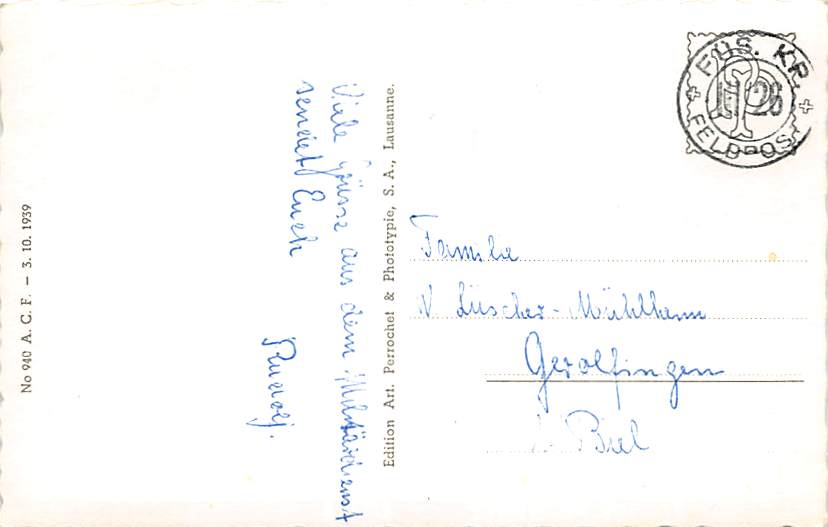 No 940 A. C. F. — 3. 10. 1939
Viele Grüsse aus dem Militärdienst
sendet Euch
Rudolf.
Edition Art. Perrochet & Phototypie, S. A., Lausanne.
FÜS. KP.
II 26
FELDPOST
P
Familie
Lüscher-Mühlheim
Gerolfingen
b. Biel